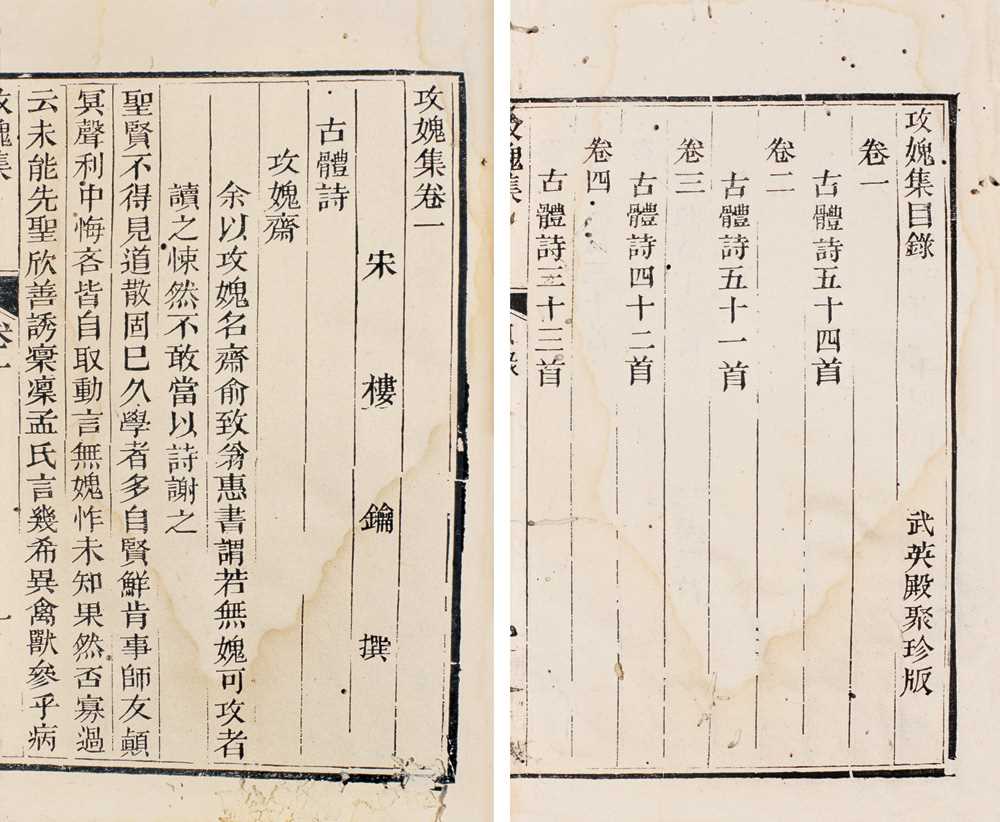 攻媿集目錄 武英殿聚珍版
卷一
古體詩五十四首
卷二
古體詩五十一首
卷三
古體詩四十二首
卷四
古體詩三十三首
攻媿集
攻媿集卷一
宋 樓 鑰 撰
古體詩
攻媿齋
余以攻媿名齋俞致翁惠書謂若無媿可攻者
讀之悚然不敢當以詩謝之
聖賢不得見道散固已久學者多自賢鮮肯事師友顛
冥聲利中悔吝皆自取動言無媿怍未知果然否寡過
云未能先聖欣善誘稟凜孟氏言幾希異禽獸參乎病
攻媿集 卷一 一